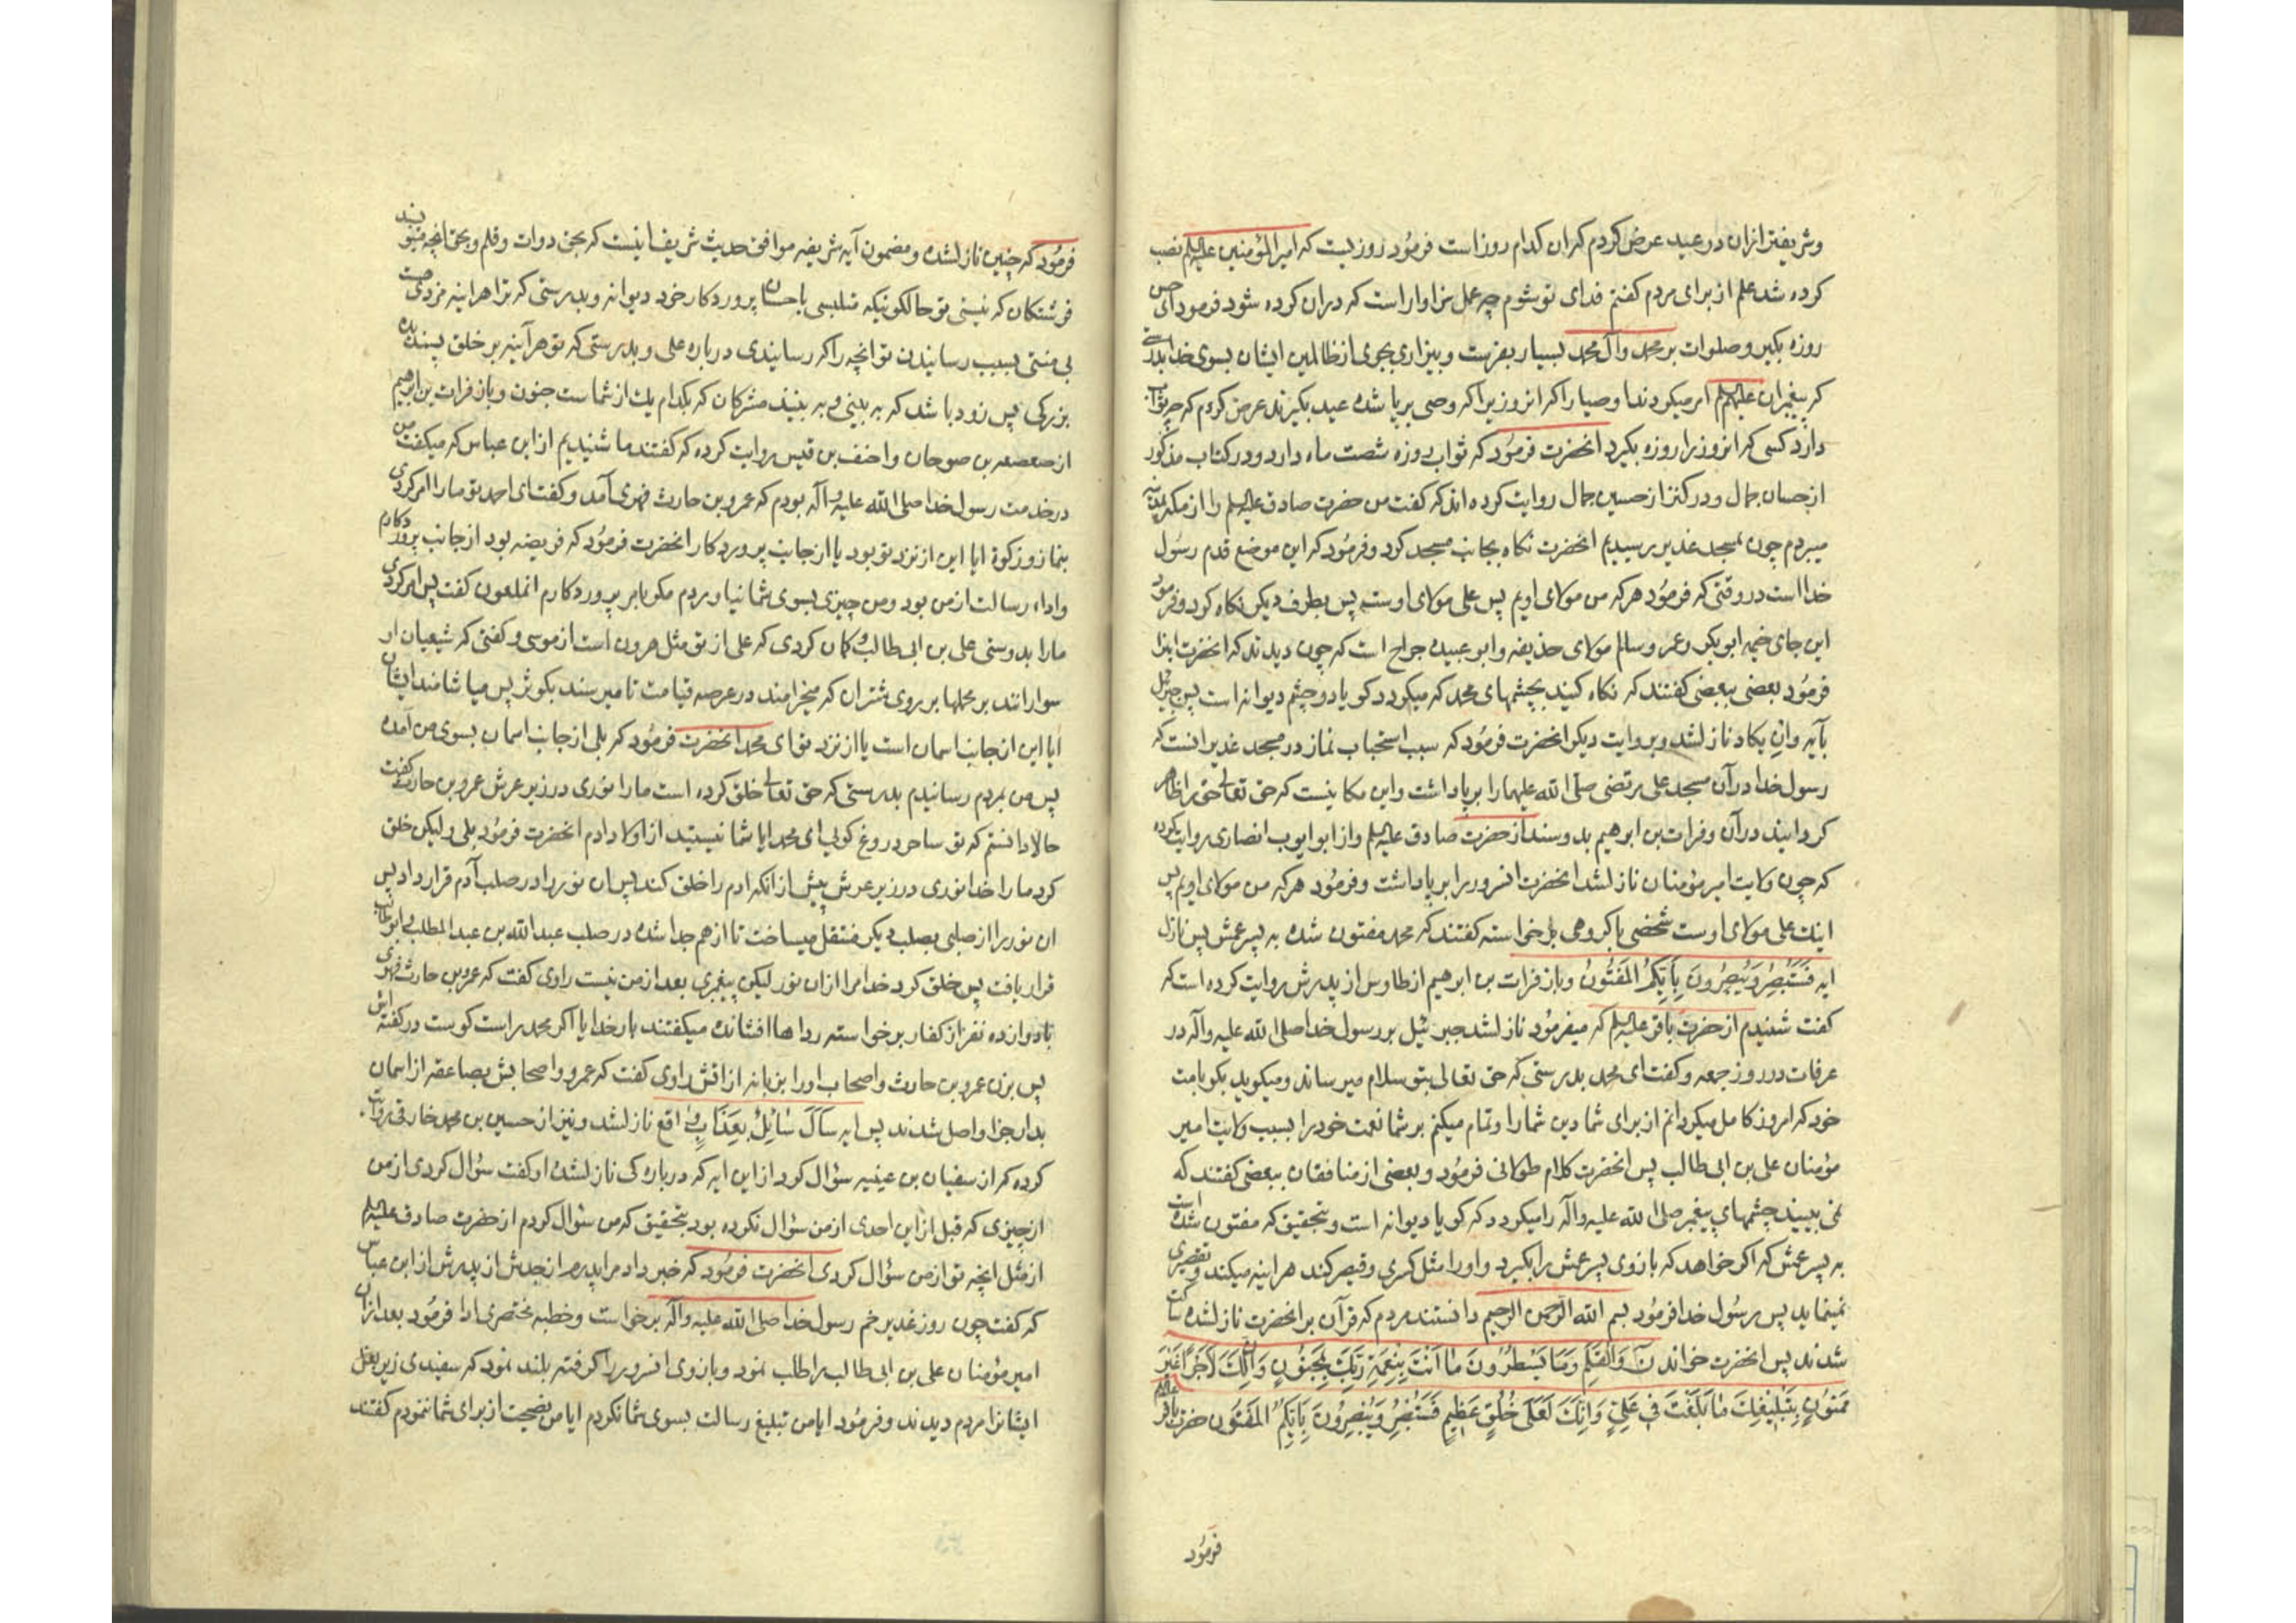 وشریفتر ازان در عید عرض کردم که ان کدام روز است فرمُود روزیست که امیرالمؤمنین علیه‌السلم نصب
کرده شد علم از برای مردم کفتم فدای تو شوم چه عمل سزاوار است که دران کرده شود فرمود ای حسن
روزه بکیر و صلوات بر محمد وآل محمد بسیار بفرست وبیزاری بجوی از ظالمین ایشان بسوی خدا بدرستی
که پیغبران علیهم‌السلم امر میکردند اوصیا را که انروزیرا که وصی برپا شده عید بکیرند عرض کردم که چه ثواب
دارد کسی که انروز را روزه بکیرد انحضرت فرمُود که ثواب روزه شصت ماه دارد ودر کتاب مذکور
از حسان جمال ودر کنز از حسین جمال روایت کرده اند که کفت من حضرت صادق علیه‌السلم را از مکه بمدینه
میبردم چون بمسجد غدیر رسیدیم انحضرت نکاه بجانب مسجد کرد وفرمُود که این موضع قدم رسُول
خدا است در وقتی که فرمُود هرکه من مولای اویم پس علی مولای اوست پس بطرف دیکر نکاه کرد وفرمود
این جای خیمه ابوبکر وعمر وسالم مولای حذیفه وابو عبیده جراح است که چون دیدند که انحضرت ایذا
فرمُود بعضی ببعضی کفتند که نکاه کنید بچشمهای محمد که میکردد کویا دو چشم دیوانه است پس جبرئیل
بآیه وان یکاد نازلشد وبروایت دیکر انحضرت فرمُود که سبب استحباب نماز در مسجد غدیر انست که
رسول خدا در آن مسجد علی مرتضی صلّی الله علیهما را برپا داشت واین مکانیست که حق تعالی حق را ظاهر
کردانید در آن وفرات بن ابرهیم بدو سند از حضرت صادق علیه‌السلم واز ابو ایوب انصاری روایت کرده
که چون ولایت امیر مؤمنان نازلشد انحضرت انسرور را برپا داشت وفرمُود هرکه من مولای اویم پس
اینك علی مولای اوست شخصی با کروهی بر خواسته کفتند که محمد مفتون شده به پسر عمش پس نازل
ایه فَسَتُبْصِرُ وَیُبْصِرُونَ بِأَیِّکُمُ الْمَفْتُونُ وباز فرات بن ابرهیم از طاوس از پدرش روایت کرده است که
کفت شنیدم از حضرت باقر علیه‌السلم که میفرمُود نازلشد جبرئیل بر رسول خدا صلی الله علیه وآله در
عرفات در روز جمعه وکفت ای محمد بدرستی که حق تعالی بتو سلام میرساند ومیکوید بکو بامت
خود که امروز کامل میکردانم از برای شما دین شما را وتمام میکنم بر شما نعمت خود را بسبب ولایت امیر
مؤمنان علی بن ابی طالب پس انحضرت کلام طولانی فرمُود وبعضی از منافقان ببعضی کفتند که
نمی بینید چشمهای پیغمبر صلی الله علیه وآله را میکردد که کویا دیوانه است وبتحقیق که مفتون شده است
به پسر عمش که اکر خواهد که بازوی پسر عمش را بکیرد واورا مثل کسری وقیصر کند هراینه میکند وتقصیری
نمینماید پس رسُول خدا فرمُود بسم الله الرحمن الرحیم دانستند مردم که قرآن بر انحضرت نازلشده ساکت
شدند پس انحضرت خواند نٓ وَالْقَلَمِ وَمَا یَسْطُرُونَ مَا اَنْتَ بِنِعْمَةِ رَبِّكَ بِمَجْنُونٍ وَاِنَّ لَكَ لَاَجْرًا غَیْرَ
مَمْنُونٍ بِتَبْلِیغِكَ مَا بَلَّغْتَ فِی عَلِیٍّ وَاِنَّكَ لَعَلَی خُلُقٍ عَظِیمٍ فَسَتُبْصِرُ وَیُبْصِرُونَ بِاَیِّکُمُ الْمَفْتُون حضرت باقر علیه‌السلم
فرمُود
فرمُود که چنین نازلشده ومضمون آیه شریفه موافق حدیث شریف اینست که بحق دوات وقلم وبحق انچه مینویسند
فرشتکان که نیستی تو حالکونیکه متلبسی باحسان پروردکار خود دیوانه وبدرستی که ترا هراینه مزدی هست
بی منتی بسبب رسانیدن تو انچه را که رسانیدی درباره علی وبدرستی که تو هرآینه بر خلق پسندیده
بزرکی پس زود باشد که به بینی وبه بینند مشرکان که بکدام یك از شماست جنون وباز فرات بن ابرهیم
از صعصعه بن صوحان واحنف بن قیس روایت کرده که کفتند ما شنیدیم از ابن عباس که میکفت من
در خدمت رسول خدا صلی الله علیه وآله بودم که عمرو بن حارث فهری آمد وکفت ای احمد تو ما را امر کردی
بنماز وزکوة ایا این از نزد تو بود یا از جانب پروردکار انحضرت فرمُود که فریضه بود از جانب پروردکارم
واداء رسالت از من بود ومن چیزی بسوی شما نیاوردم مکر بامر پروردکارم انملعون کفت پس امر کردی
مارا بدوستی علی بن ابی طالب وکمان کردی که علی از تو مثل هرون است از موسی وکفتی که شیعیان او
سوارانند بر محملها بر روی شتران که میخرامند در عرصه قیامت تا میرسند بکوثر پس میاشامند ایشان
ایا این از جانب اسمان است یا از نزد تو ای محمد انحضرت فرمُود که بلی از جانب اسمان بسوی من آمده
پس من بمردم رسانیدم بدرستی که حق تعالی خلق کرده است مارا نوری در زیر عرش عمرو بن حارث کفت
حالا دانستم که تو ساحر دروغ کویی ای محمد ایا شما نیستید از اولاد ادم انحضرت فرمُود بلی ولیکن خلق
کرد مارا خدا نوری در زیر عرش پیش از انکه ادم را خلق کند پس ان نور را در صلب آدم قرار داد پس
ان نور را از صلبی بصلب دیکر منتقل میساخت تا از هم جدا شده در صلب عبدالله بن عبدالمطلب وابوطالب
قرار یافت پس خلق کرد خدا مرا ازان نور لیکن پیغمبری بعد از من نیست راوی کفت که عمرو بن حارث فهری
با دوازده نفر از کفار برخواسته رداها افشانده میکفتند بار خدایا اکر محمد راست کوست در کفته اش
پس بزن عمرو بن حارث واصحاب اورا بزبانه از اتش راوی کفت که عمرو واصحابش بصاعقه از اسمان
بدار جزا واصل شدند پس ایه سَأَلَ سَائِلٌ بِعَذَابٍ وَاقِعٍ نازلشد ونیز از حسین بن محمد خارقی روایت
کرده که از سفیان بن عیینه سؤال کرد از این ایه که درباره کی نازلشده او کفت سؤال کردی از من
از چیزی که قبل از این احدی از من سؤال نکرده بود بتحقیق که من سؤال کردم از حضرت صادق علیه‌السلم
از مثل انچه تو از من سؤال کردی انحضرت فرمُود که خبر داد مرا پدرم از جدش از پدرش از ابن عباس
که کفت چون روز غدیر خم رسول خدا صلی الله علیه وآله برخواست وخطبه مختصری ادا فرمُود بعد ازان
امیر مؤمنان علی بن ابی طالب را طلب نمود وبازوی انسرور را کرفته بلند نمود که سفیدی زیر بغل
ایشانرا مردم دیدند وفرمُود ایا من تبلیغ رسالت بسوی شما نکردم ایا من نصیحت از برای شما ننمودم کفتند